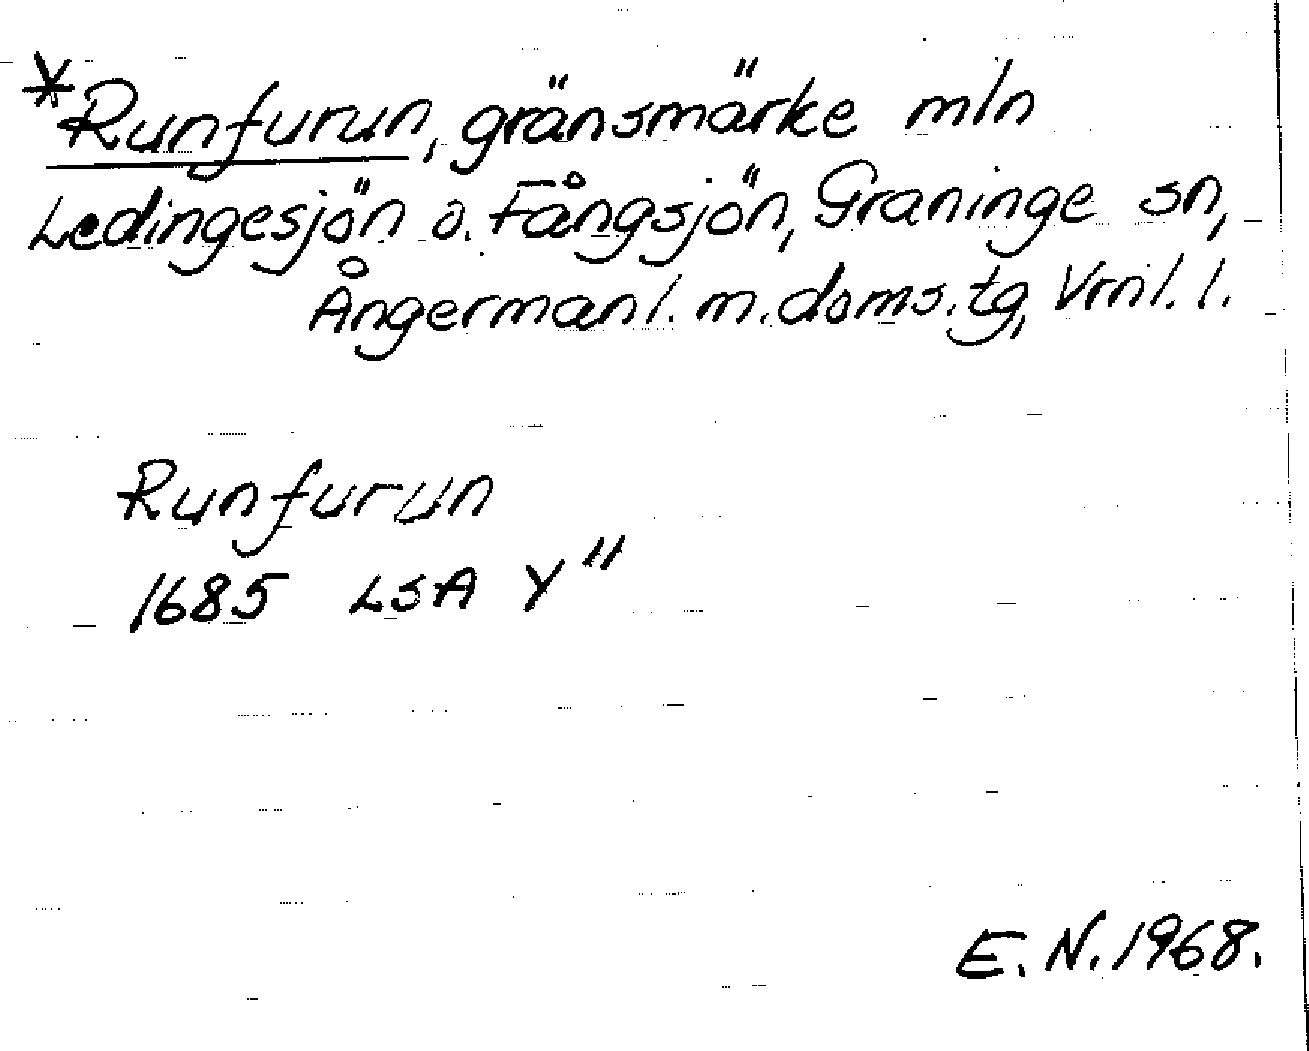 *Runfurun, gränsmärke mln
Ledingesjön o. Fångsjön, Graninge sn,
Ångermanl. m. doms. tg, Vrnl. l.
Runfurun
1685 LSA Y"
E. N. 1968.